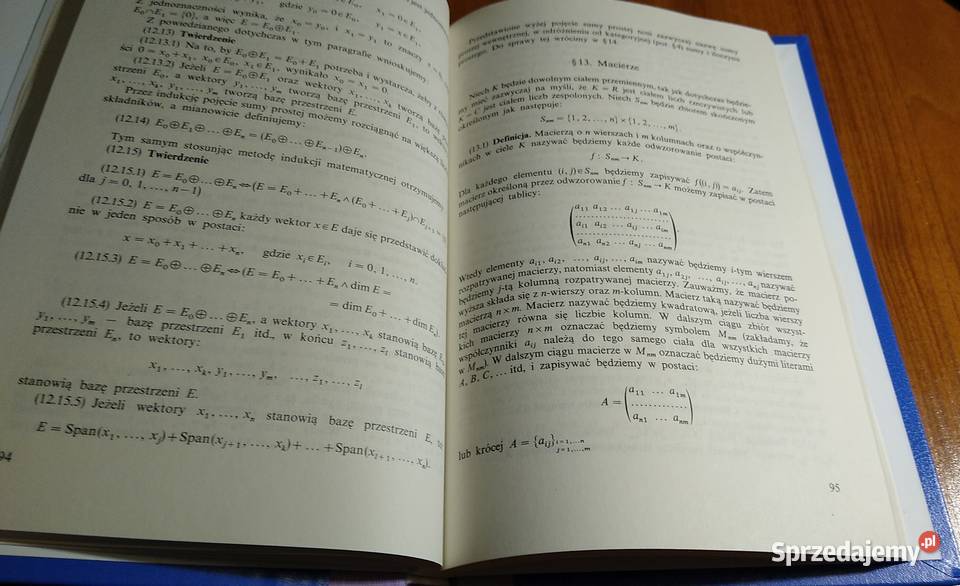 gdzie y₀ = 0 ∈ E₀, x₁ = 0 ∈ E₁
Z jednoznaczności wynika, że x₀ = y₀, i x₁ = y₁ to znaczy
E₀∩E₁ = {0}, a więc E = E₀⊕E₁.
Z powiedzianego dotychczas w tym paragrafie wnioskujemy.
(12.13) Twierdzenie
(12.13.1) Na to, by E₀⊕E₁ = E₀+E₁ potrzeba i wystarcza, żeby z
ści 0 = x₀+x₁, x₀∈E₀, x₁∈E₁, wynikało x₀ = x₁ = 0.
(12.13.2) Jeżeli E = E₀⊕E₁ oraz wektory x₁, ..., xₖ tworzą bazę
strzeni E₀, a wektory y₁, ..., yₘ tworzą bazę przestrzeni E₁, to
x₁, ..., xₖ, y₁, ..., yₘ tworzą bazę przestrzeni E.
Przez indukcję pojęcie sumy prostej możemy rozciągnąć na większą
składników, a mianowicie definiujemy:
(12.14) E₀⊕E₁⊕...⊕Eₙ = (E₀⊕...⊕Eₙ₋₁)⊕Eₙ.
Tym samym stosując metodę indukcji matematycznej otrzymujemy
(12.15) Twierdzenie
(12.15.1) E = E₀⊕...⊕Eₙ⇔(E = E₀+...+Eₙ∧(E₀+...+Eⱼ)∩Eⱼ₊₁ =
dla j = 0, 1, ..., n−1)
(12.15.2) E = E₀⊕...⊕Eₙ każdy wektor x∈E daje się przedstawić
nie w jeden sposób w postaci:
x = x₀+x₁+...+xₙ, gdzie xᵢ∈Eᵢ, i = 0, 1, ..., n.
(12.15.3) E = E₀⊕...⊕Eₙ⇔(E = E₀+...+Eₙ∧dim E =
= dim E₀+...+dim Eₙ).
(12.15.4) Jeżeli E = E₀⊕...⊕Eₙ, a wektory x₁, ..., xₖ stanowią bazę
y₁, ..., yₘ — bazę przestrzeni E₁ itd., w końcu z₁, ..., zₗ stanowią
przestrzeni Eₙ, to wektory:
x₁, ..., xₖ, y₁, ..., yₘ, ..., z₁, ..., zₗ
stanowią bazę przestrzeni E.
(12.15.5) Jeżeli wektory x₁, ..., xₙ stanowią bazę przestrzeni E, to
E = Span(x₁, ..., xⱼ)+Span(xⱼ₊₁, ..., xₖ)+ ... +Span(xᵢ₊₁, ..., xₙ).
94
Przedstawione wyżej pojęcie sumy prostej nosi zazwyczaj nazwę sumy
prostej wewnętrznej, w odróżnieniu od kategoryjnej (por. §4) sumy i iloczynu
prostego. Do sprawy tej wrócimy w §14.
§13. Macierze
Niech K będzie dowolnym ciałem przemiennym, tak jak dotychczas będzie-
my mieć zazwyczaj na myśli, że K = R jest ciałem liczb rzeczywistych lub
K = C jest ciałem liczb zespolonych. Niech Sₙₘ będzie zbiorem skończonym
określonym jak następuje:
Sₙₘ = {1, 2, ..., n}×{1, 2, ..., m}.
(13.1) Definicja. Macierzą o n wierszach i m kolumnach oraz o współczyn-
nikach w ciele K nazywać będziemy każde odwzorowanie postaci:
f : Sₙₘ→K.
Dla każdego elementu (i, j)∈Sₙₘ będziemy zapisywać f((i, j)) = aᵢⱼ. Zatem
macierz określoną przez odwzorowanie f : Sₙₘ→K możemy zapisać w postaci
następującej tablicy:
a₁₁ a₁₂ ... a₁ⱼ ... a₁ₘ
....................
aᵢ₁ aᵢ₂ ... aᵢⱼ ... aᵢₘ
....................
aₙ₁ aₙ₂ ... aₙⱼ ... aₙₘ
Wtedy elementy aᵢ₁, aᵢ₂, ..., aᵢⱼ, ..., aᵢₘ nazywać będziemy i-tym wierszem
rozpatrywanej macierzy, natomiast elementy a₁ⱼ, a₂ⱼ, ..., aᵢⱼ, ..., aₙⱼ nazywać
będziemy j-tą kolumną rozpatrywanej macierzy. Zauważmy, że macierz po-
wyższa składa się z n-wierszy oraz m-kolumn. Macierz taką nazywać będziemy
macierzą n×m. Macierz nazywać będziemy kwadratową, jeżeli liczba wierszy
tej macierzy równa się liczbie kolumn. W dalszym ciągu zbiór wszyst-
kich macierzy n×m oznaczać będziemy symbolem Mₙₘ (zakładamy, że
współczynniki aᵢⱼ należą do tego samego ciała dla wszystkich macierzy
w Mₙₘ). W dalszym ciągu macierze w Mₙₘ oznaczać będziemy dużymi literami
A, B, C, ... itd, i zapisywać będziemy w postaci:
a₁₁ ... a₁ₘ
A = .............
aₙ₁ ... aₙₘ
lub krócej A = {aᵢⱼ} i=1,...n
j=1,...,m
95
Sprzedajemy.pl